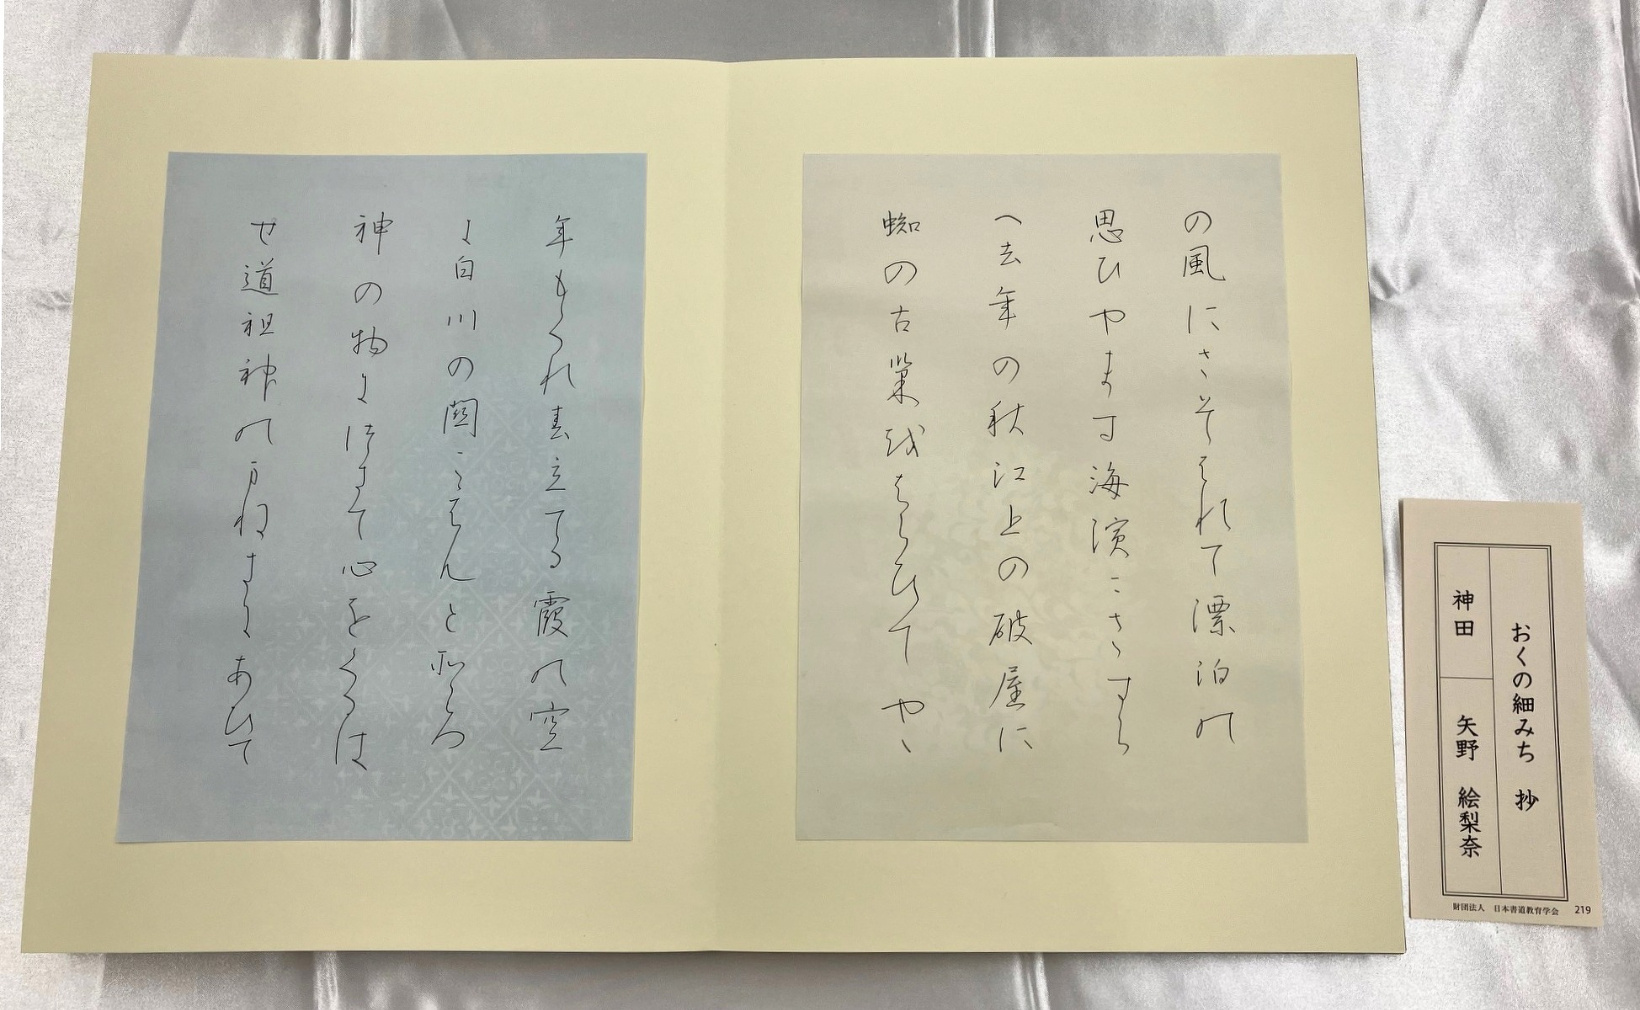 の風にさそはれて漂泊の
思ひやます海濱にさすら
へ去年の秋江上の破屋に
蜘の古巣をはらひてやゝ
年もくれ春立てる霞の空
に白川の関こえんと
神の物につきて心をくるは
せ道祖神のまねきにあひて
おくの細みち 抄
神田 矢野 絵梨奈
財団法人 日本書道教育学会 219